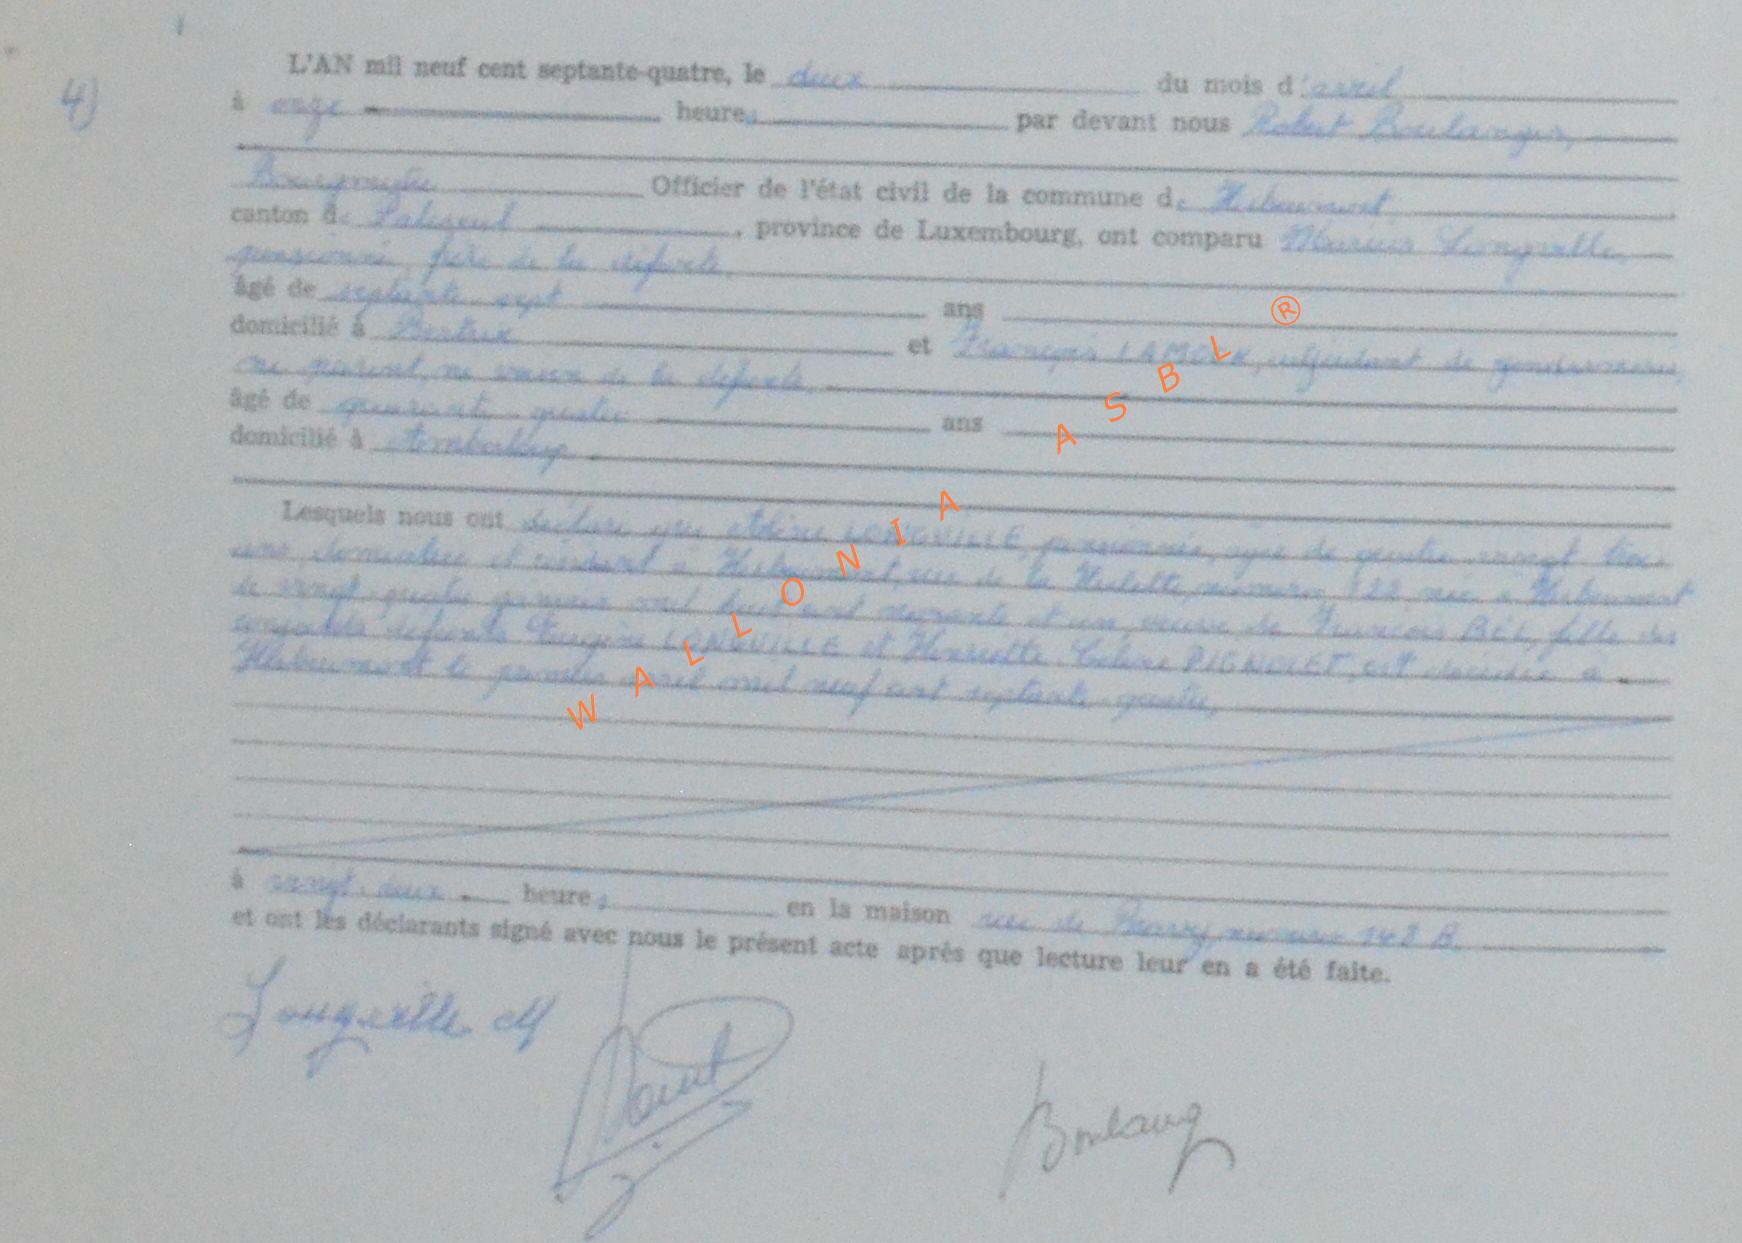 4)
L'AN mil neuf cent septante-quatre, le deux du mois d'avril
à onze heures par devant nous Robert Boulanger,
Bourgmestre Officier de l'état civil de la commune de Herbeumont
canton de Paliseul, province de Luxembourg, ont comparu Marius Longville,
pensionné, frère de la défunte,
âgé de septante-sept ans
domicilié à Bertrix et François LAMOCK, adjudant de gendarmerie,
ni parent, ni voisin de la défunte,
âgé de quarante-quatre ans
domicilié à Amberloup
Lesquels nous ont déclaré que LONGVILLE, pensionnée, âgée de quatre vingt trois
ans, domiciliée et résidant à Herbeumont, rue de la Hulette, numéro 122, née à Herbeumont
le vingt-quatre janvier mil huit cent nonante et un, veuve de François BÉL, fille des
conjoints défunts Eugène LONGVILLE et Henriette PIGNOLET, est décédée à
Herbeumont le premier avril mil neuf cent septante-quatre,
à vingt-deux heures en la maison rue de numéro 148 B.
et ont les déclarants signé avec nous le présent acte après que lecture leur en a été faite.
Longville M
Boulang
WALLONIA ASBL ®